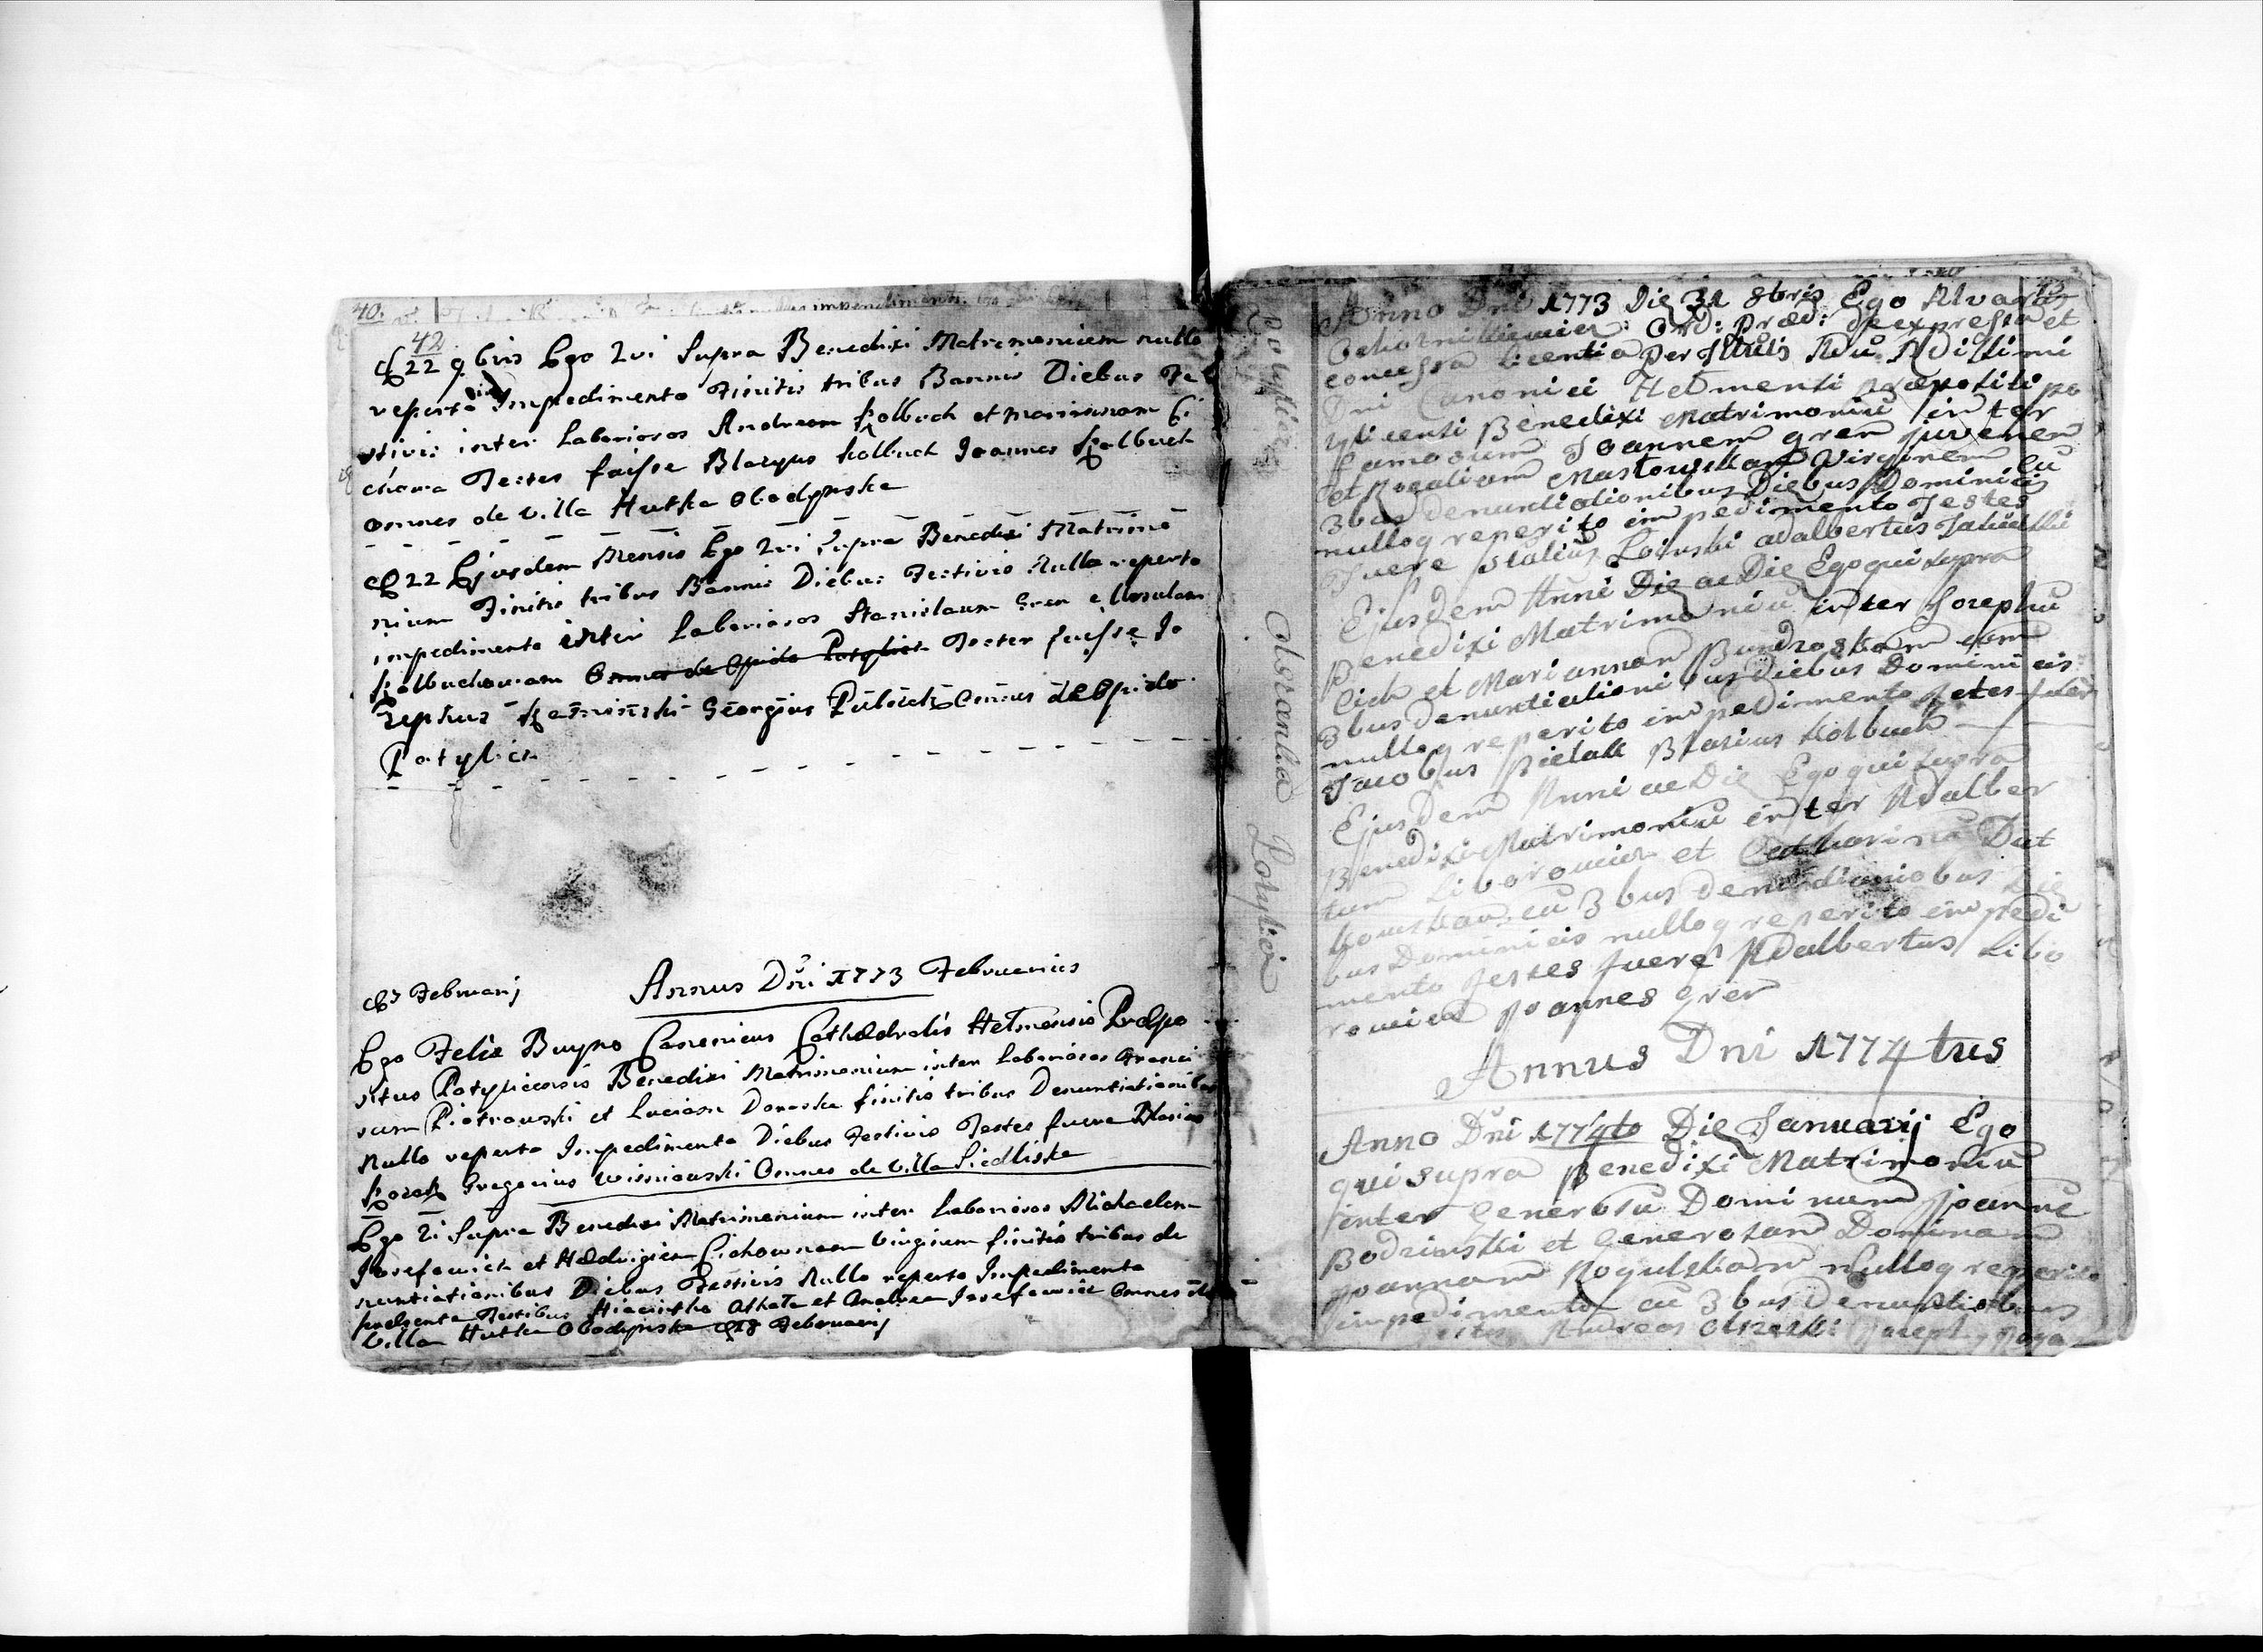 40.
42
d 22 9bris Ego Qui Supra Benedixi Matrimonium nullo
reperto Impedimento Finitis tribus Bannis Diebus Fe
stivis inter Laboriosos Andream Kolbuch et Mariannam Ci
chowa Testes fuisse Blazyus Kolbuch Joannes Kolbuch
omnes de Villa Hutka Obodynska
d 22 Ejusdem Mensis Ego Qui Supra Benedixi Matrimo
nium Finitis tribus Bannis Diebus Festivis Nullo reperto
impedimento inter Laboriosos Stanislaum Gren e Ursulam
Kolbuchowiam Omnes de Opido Potylicz Testes fuisse Jo
zephus Georgius omnes de Opido
Potylicz
Annus Dni 1773 Februarius
d 7 Februarij
Ego Felix Buyno Canonicus Cathædralis Helmensis Præpo
situs Potylicensis Benedixi Matrimonium inter Laboriosos Franci
scum Piotrowski et Luciam Donoska finitis tribus Denuntiationibus
Nullo reperto Impedimento Diebus Festivis Testes fuere Blasius
Kozak Gregorius Wisniowski Omnes de Villa Siedliska
Ego Qi Supra Benedixi Matrimonium inter Laboriosos Michaelem
Josefowich et Hædvigiem Cichownam Virginem finitis tribus de
nuntiationibus Diebus Festivis Nullo reperto Impedimento
præsente Testibus Hiacintho et Andrea Josefowicz Omnes de
Villa Hutka Obodynska d 18 Februarij
Potylicz
Obszanka Potylicz
43
Anno Dni 1773 Die 31 8bris Ego Alvarus
Ord: Præd: de expressa et
concessa licentia Per Illutris Adu: Rdissimi
Dni Canonici Helmensi præpositi po
tylicensi Benedixi Matrimoniu inter
famosum Joannem gren juvenem
et Rosaliam Mastowskam Virginem cu
3bus denuntiationibus Diebus Dominicis
nulloq reperito impedimento Testes
Fuere adalbertus
Ejusdem Anni Die ac Die Ego qui supra
Benedixi Matrimoniu inter Josephu
Cich et Mariannam cum
3bus denuntiationibus Diebus Dominicis
nulloq reperito impedimento Testes fuer
Jacobus Pielak Blasius Kolbuch
Ejusdem Anni ac Die Ego qui supra
Benedixi Matrimoniu inter Adalber
tum Liborowicz et Catharina Dut
kowskam cu 3bus denuntianiobus Die
bus Dominicis nulloq reperito impedi
mento Testes fuere Adalbertus Libo
rowicz Joannes Gren
Annus Dni 1774tus
Anno Dni 1774to Die Januarij Ego
qui supra Benedixi Matrimoniu
inter Generosu Dominum Joanne
Bodzinski et Generosam Dominam
Joannam Rogulskam nulloq reperito
impedimento cu 3bus Denuntiobus
Andreas Joseph